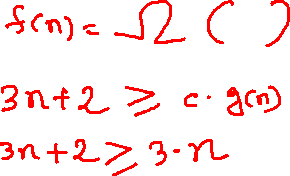 f(n) = Ω ( )
3n+2 ≥ c· g(n)
3n+2 ≥ 3·n